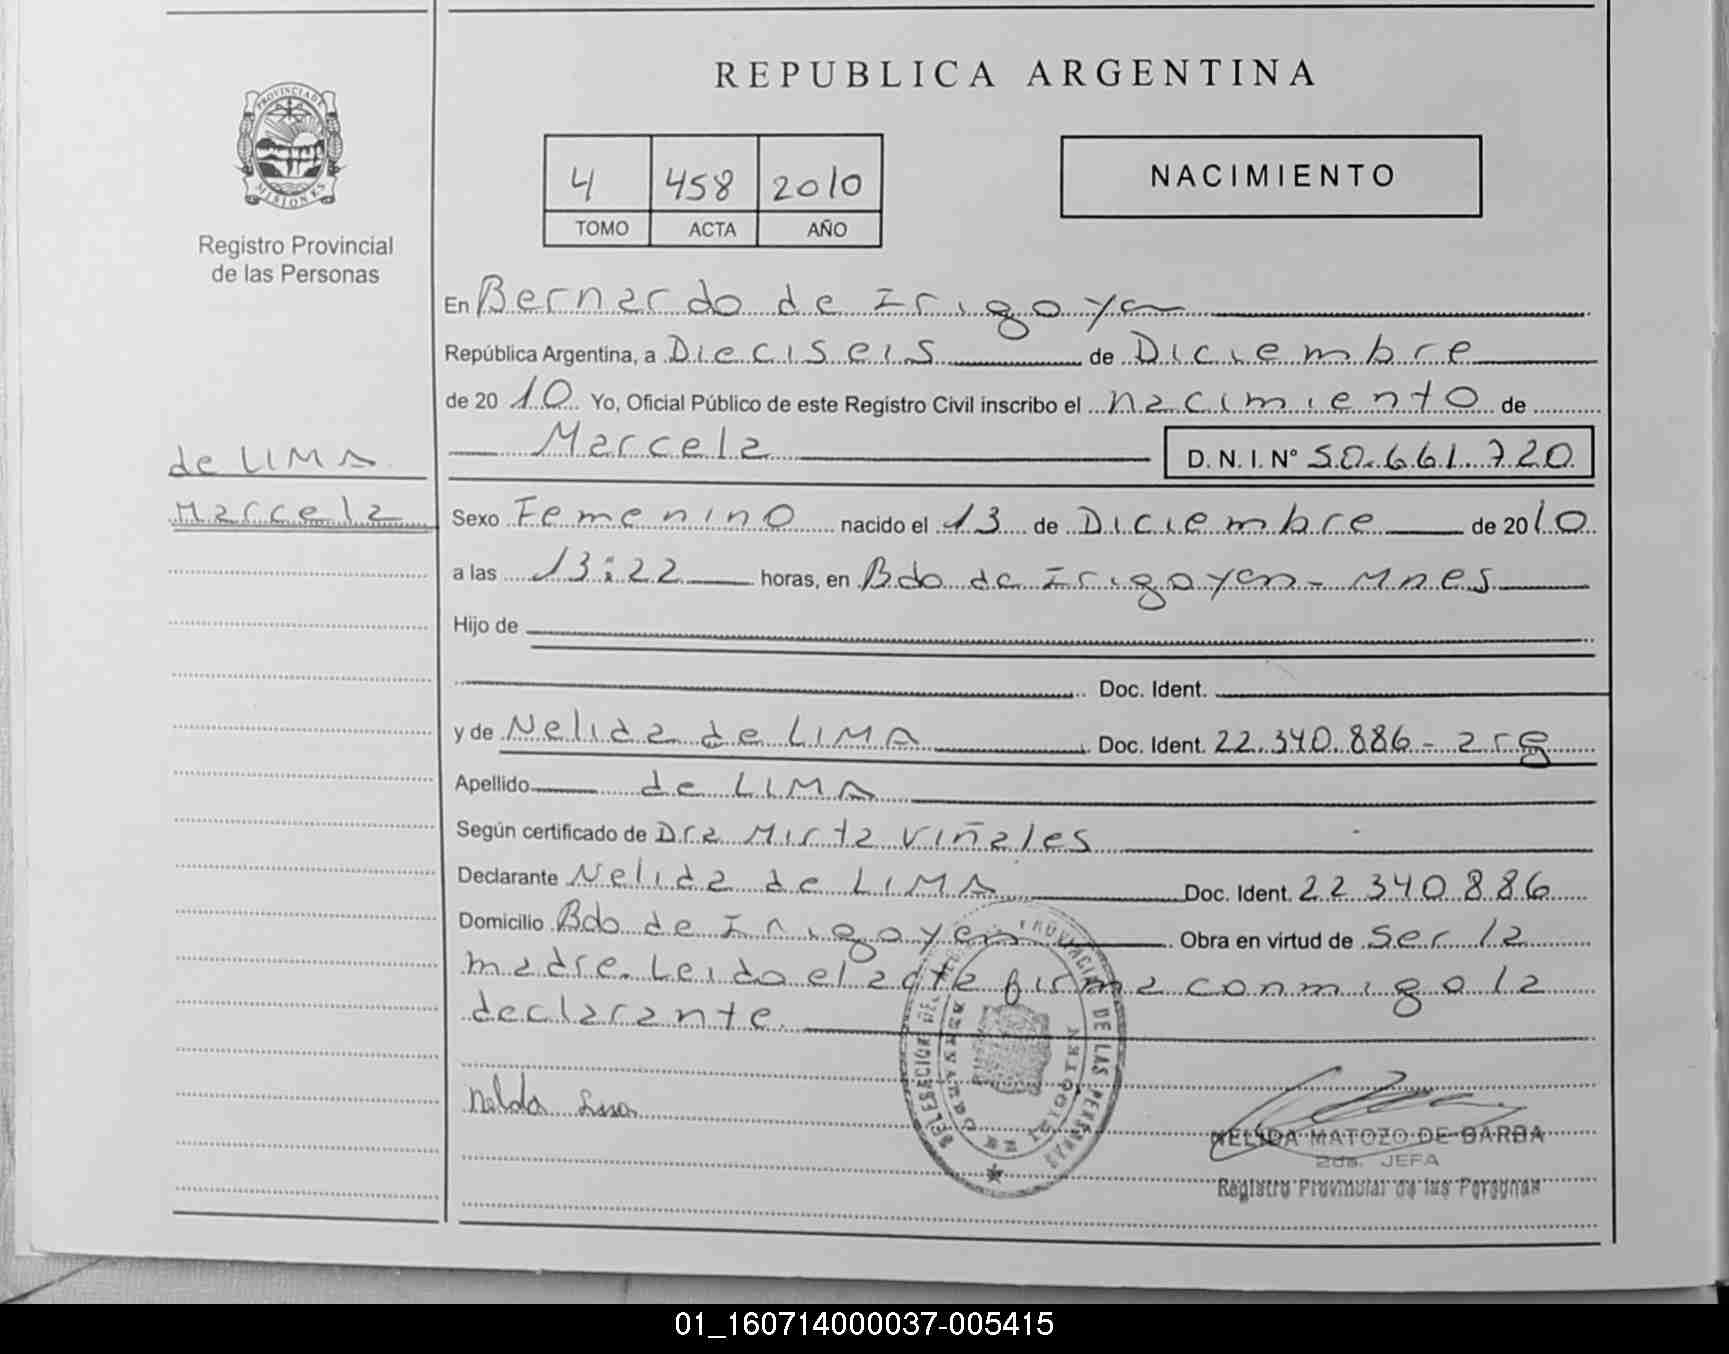 REPUBLICA ARGENTINA
PROVINCIA DE
MISIONES
Registro Provincial
de las Personas
4 458 2010
TOMO ACTA AÑO
NACIMIENTO
En Bernardo de Irigoyen
República Argentina, a Dieciseis de Diciembre
de 20 10 Yo, Oficial Público de este Registro Civil inscribo el nacimiento de
Marcela D. N. I. Nº 50.661.720
de LIMA
Marcela
Sexo Femenino nacido el 13 de Diciembre de 20 10
a las 13:22 horas, en Bdo de Irigoyen - Mnes
Hijo de
Doc. Ident.
y de Nelida de LIMA Doc. Ident. 22.340.886 - arg
Apellido de LIMA
Según certificado de Dra Mirta Viñales
Declarante Nelida de LIMA Doc. Ident. 22 340 886
Domicilio Bdo de Irigoyen Obra en virtud de Ser la
madre. Leido el acta firma conmigo la
declarante.
PROVINCIAL DE LAS PERSONAS
DELEGACION DEL
BERNARDO DE IRIGOYEN
NELIDA MATOZO DE BARBA
2da. JEFA
Registro Provincial de las Personas
01_160714000037-005415